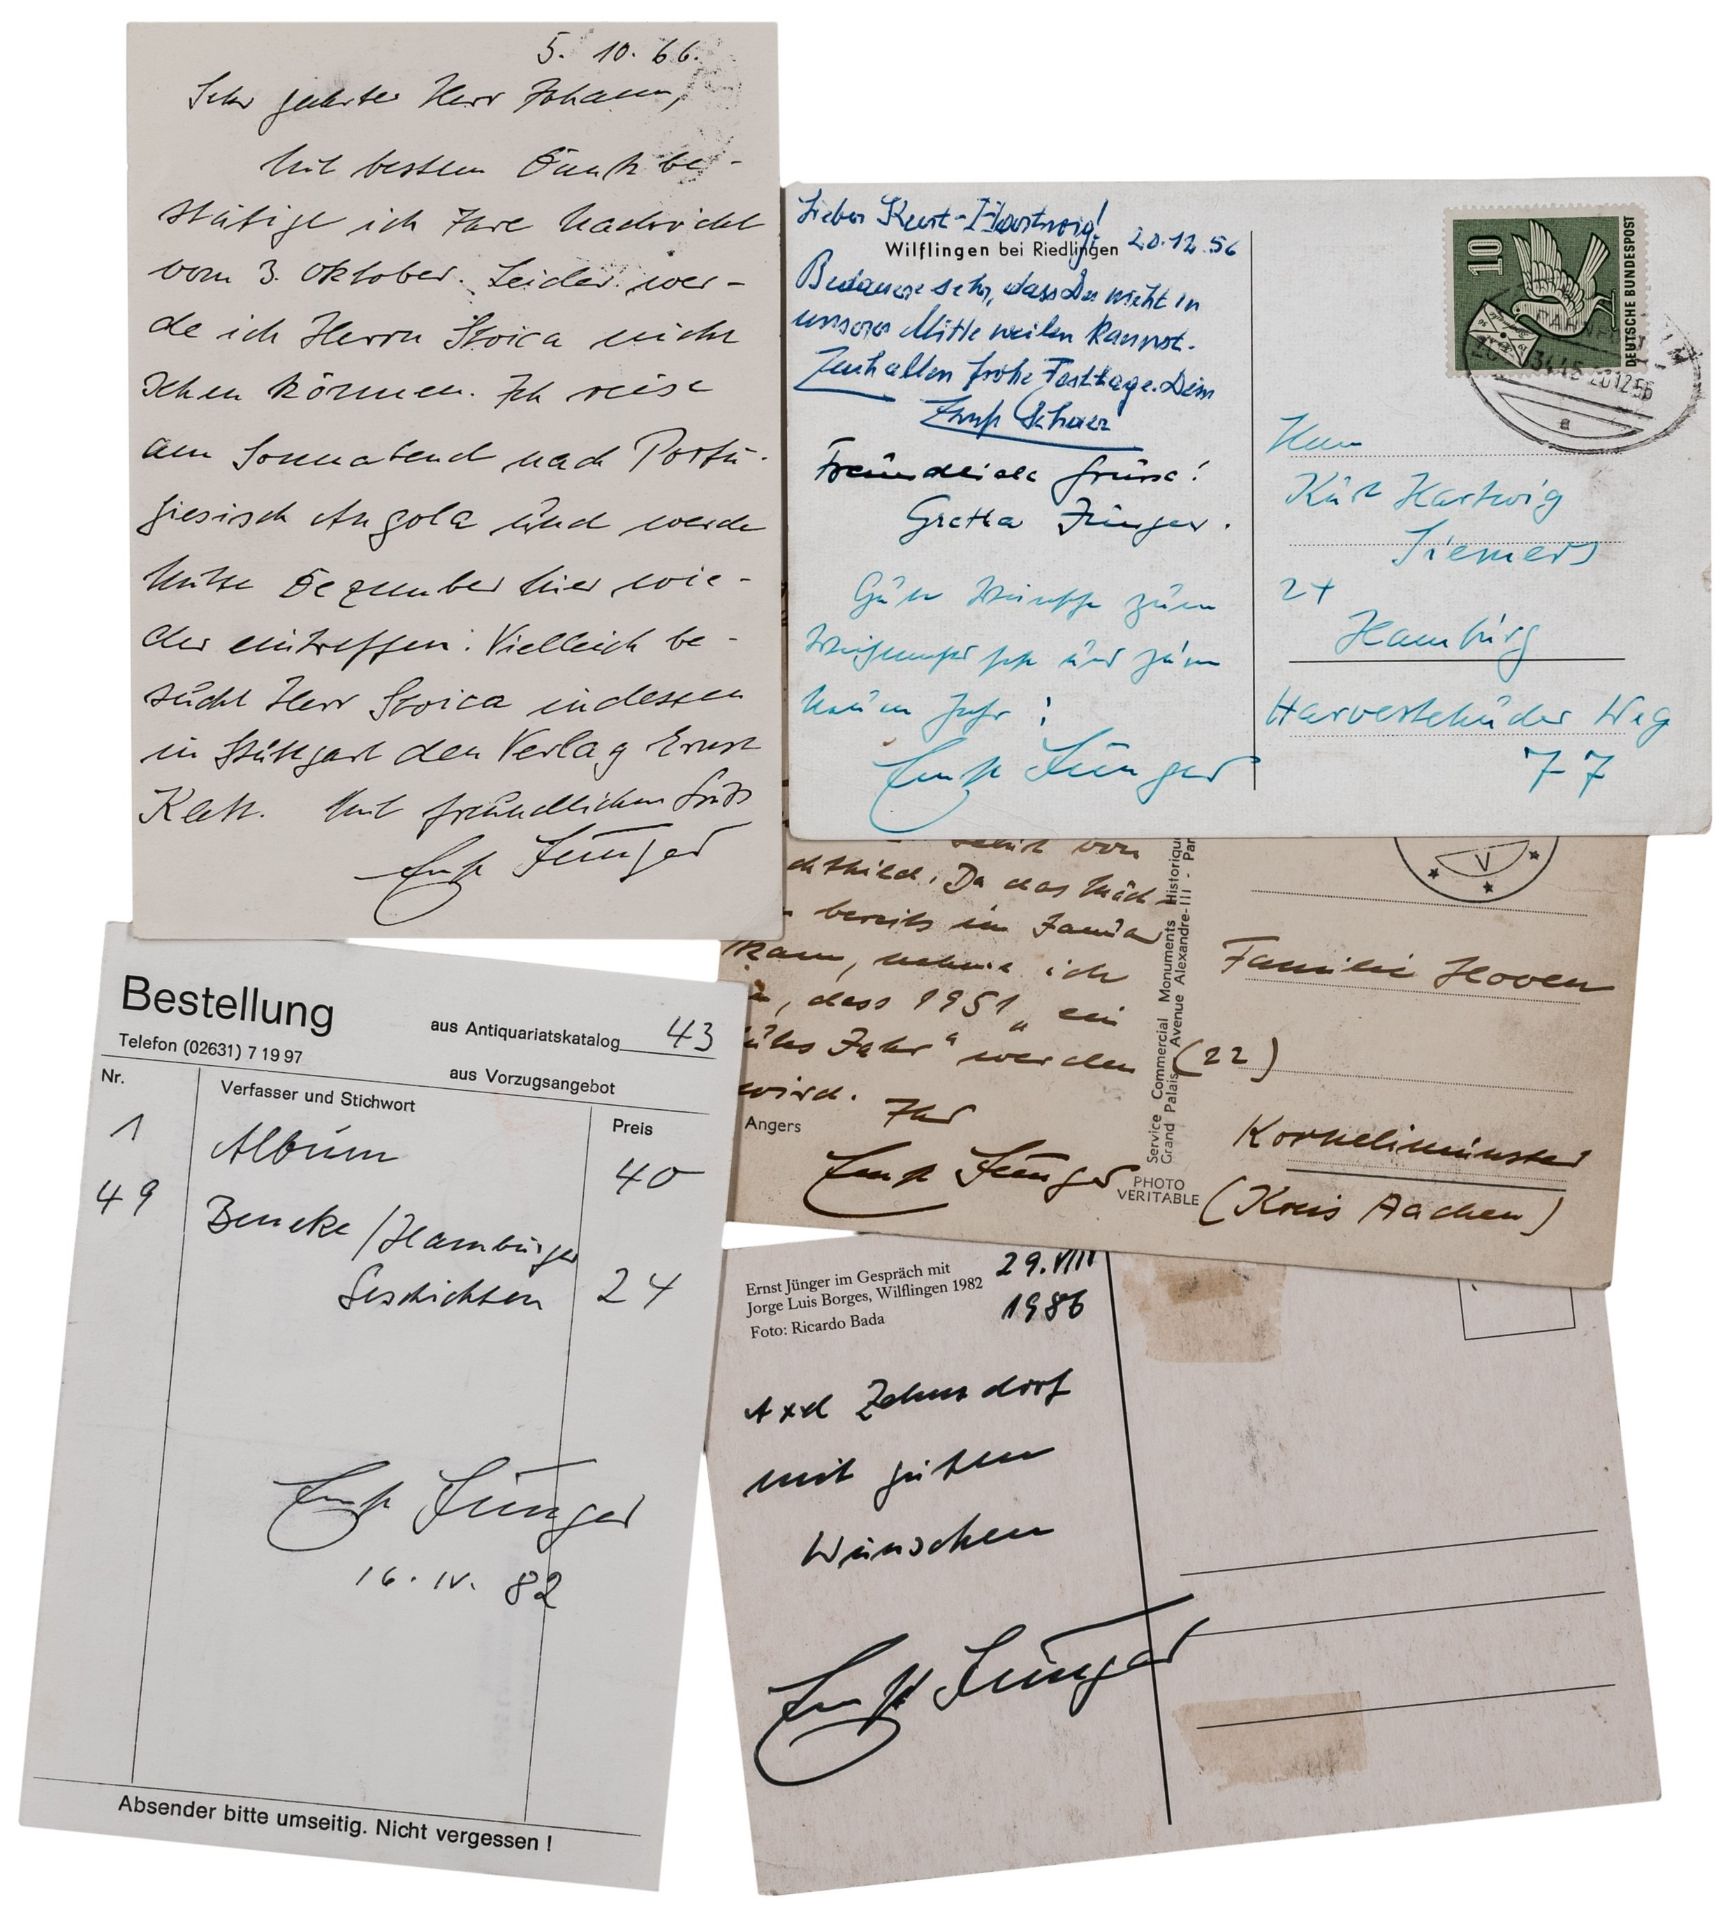 5. 10. 66.
Sehr geehrter Herr Johann,
Mit bestem Dank be-
stätige ich Ihre Nachricht
vom 3. Oktober. Leider wer-
de ich Herrn Stoica nicht
sehen können. Ich reise
am Sonnabend nach Portu-
giesisch Angola und werde
Mitte Dezember hier wie-
der eintreffen. Vielleich be-
sucht Herr Stoica indessen
in Stuttgart den Verlag Ernst
Klett. Mit freundlichem Gruß
Ernst Jünger
Lieber Kurt-Hartwig!
Wilflingen bei Riedlingen 20.12.56
Bedauere sehr, dass Du nicht in
unserer Mitte weilen kannst.
frohe Festtage. Dein
Ernst
Freundliche Grüsse!
Gretha Jünger.
Gute Wünsche zum
Weihnachtsfest und zum
Neuen Jahr!
Ernst Jünger
10
DEUTSCHE BUNDESPOST
20.12.56
a
Herrn
Kurt Hartwig
Siemers
24
Hamburg
Harvestehuder Weg
77
von
chthild. Da das Mäd-
bereits im Januar
kam, nehme ich
, dass 1951 „ein
Jahr" werden
wird.
Angers
Ihr
Ernst Jünger
Service Commercial Monuments Historiqu
Grand Palais Avenue Alexandre-III - Par
PHOTO
VERITABLE
V
Familie Hoven
(22)
Kornelimünster
(Kreis Aachen)
Bestellung
aus Antiquariatskatalog 43
Telefon (02631) 7 19 97
aus Vorzugsangebot
Nr.
Verfasser und Stichwort
Preis
1 Album 40
49 Beneke / Hamburger
Geschichten 24
Ernst Jünger
16. IV. 82
Absender bitte umseitig. Nicht vergessen !
Ernst Jünger im Gespräch mit
Jorge Luis Borges, Wilflingen 1982
Foto: Ricardo Bada
29. VIII
1986
Axel Zehnsdorf
mit guten
Wünschen
Ernst Jünger